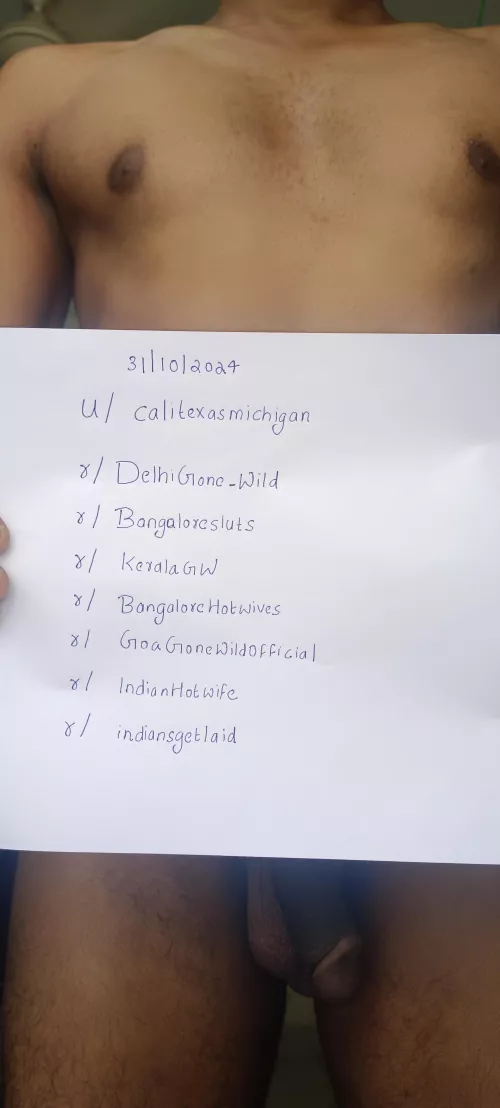 31/10/2024
u/ calitexasmichigan
r/ DelhiGone_Wild
r/ Bangaloresluts
r/ KeralaGW
r/ BangaloreHotwives
r/ GoaGoneWildOfficial
r/ IndianHotwife
r/ indiansgetlaid